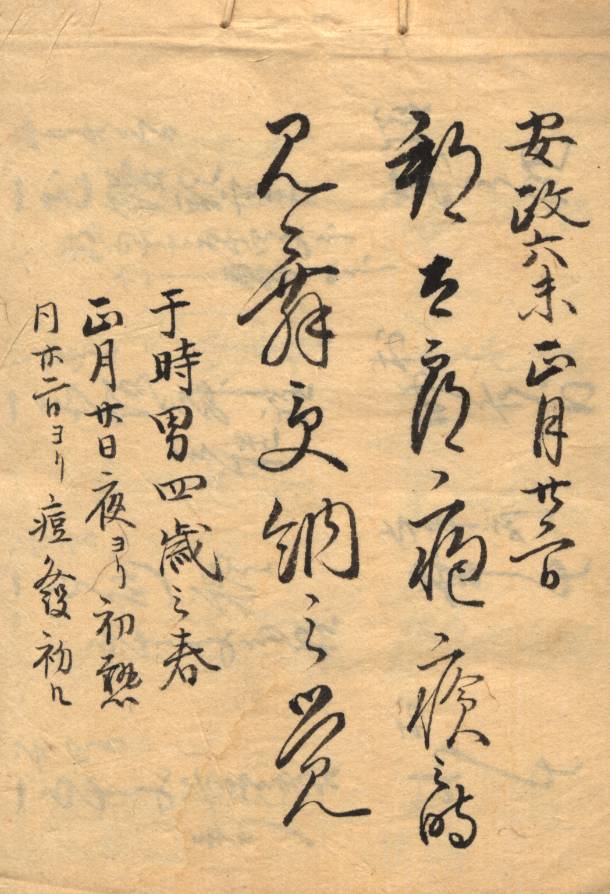 安政六未正月廿二日
疱瘡之時
見舞受納之覚
于時男四歳之春
正月廿日夜ヨリ初熱
同廿二日ヨリ痘發初ル